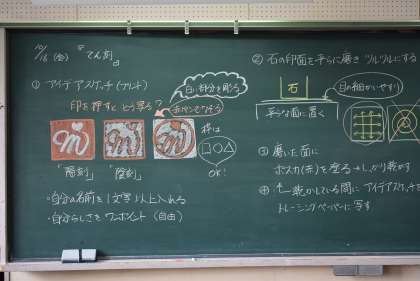 10/16(金)『てん刻』
① アイデアスケッチ(プリント)
印を押すとどう写る?
白い部分を彫る
赤ペンでぬろう
枠は
□○△
OK!
「陽刻」「陰刻」
・自分の名前を1文字以上入れる
・自分らしさをワンポイント(自由)
② 石の印面を平らに磨きツルツルにする
石
目の細かいやすり
平らな面に置く
③ 磨いた面に
ポスカ(赤)を塗る→しっかり乾かす
④ ↑乾かしている間にアイデアスケッチを
トレーシングペーパーに写す